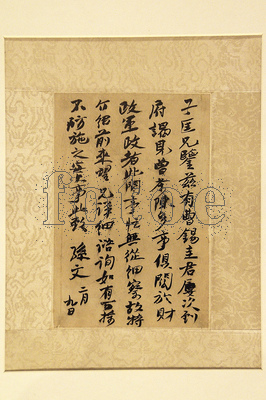 子匡兄鑒茲有曹錫圭君屢次到
府謁見曹君陳多事俱關於財
政軍政者此間事忙無從細察故特
介紹前來望兄詳細諮詢如有可採
不妨施之實事此致 孫文 二月
九日
fotoe